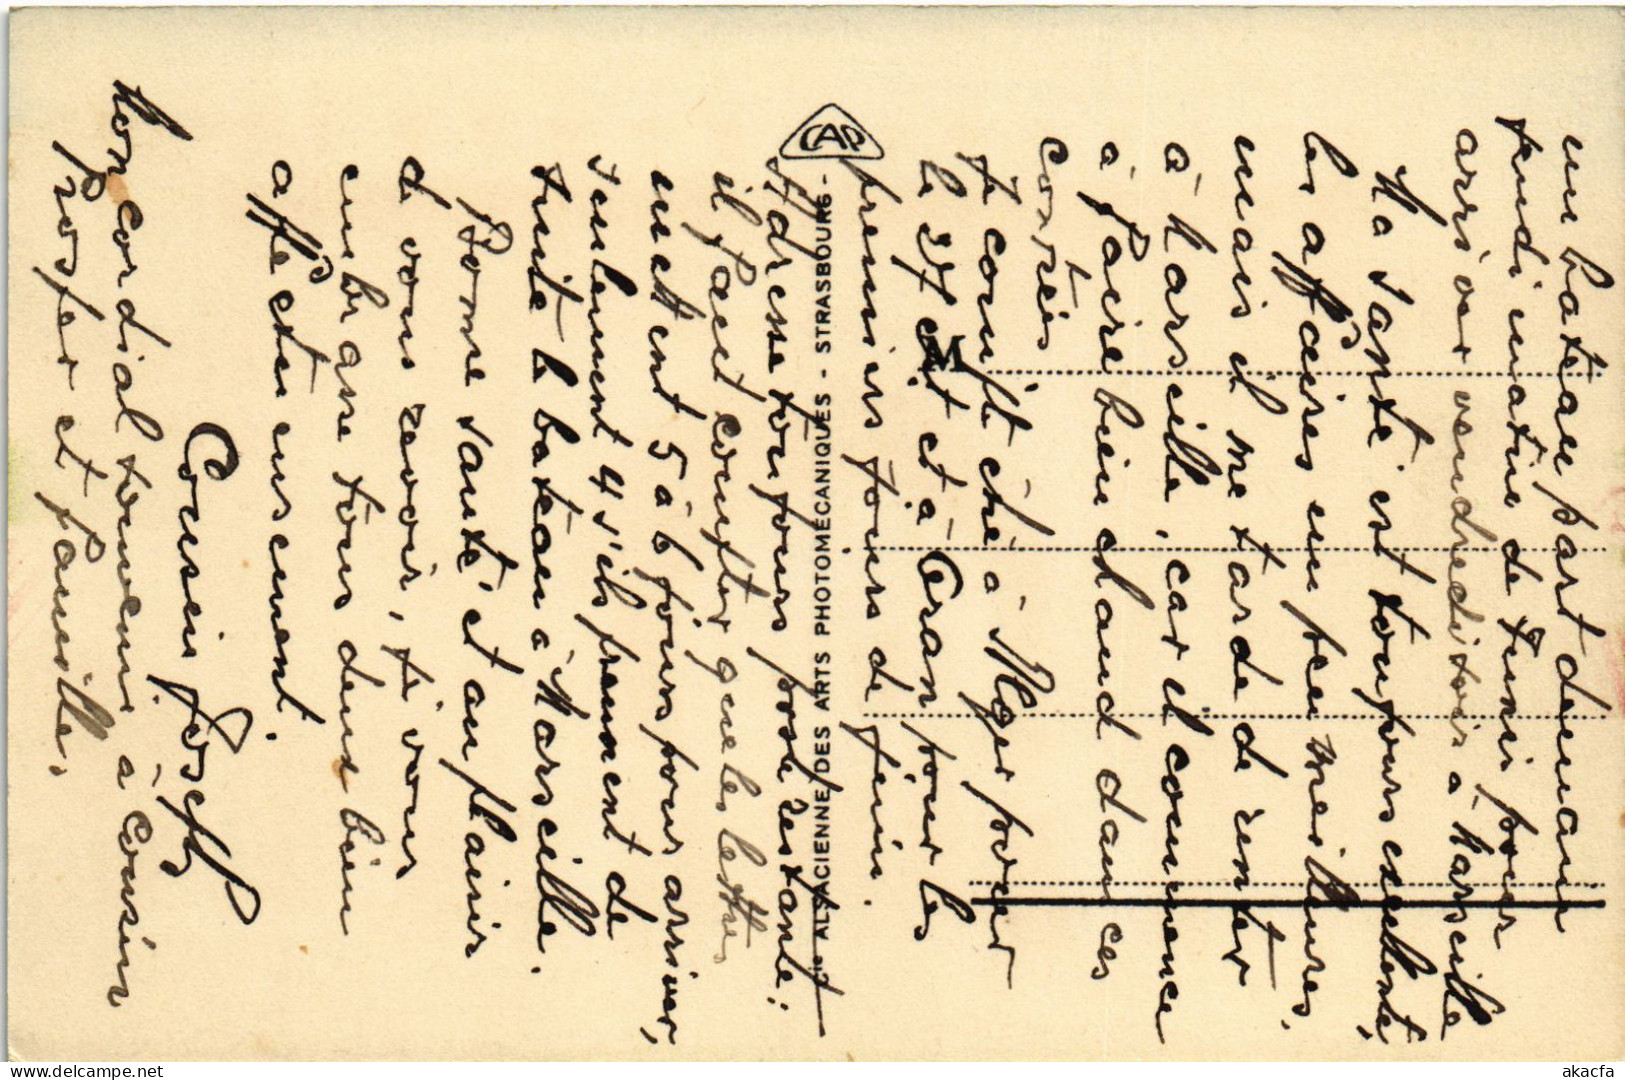 un bateau part demain
jeudi matin de Tunis pour
arriver vendredi soir à Marseille
Ma santé est toujours excellente,
les affaires un peu meilleures,
mais il me tarde de rentrer
à Marseille, car il commence
à faire bien chaud dans ces
contrées
Je compte être à Alger pour
le 27 et et à Oran pour les
premiers jours de juin.
Adresse toujours poste restante;
il faut compter que les lettres
mettent 5 à 6 jours pour arriver,
seulement 4 s'ils prennent de
suite le bateau à Marseille.
Bonne santé et au plaisir
de vous revoir, je vous
embrasse tous deux bien
affectueusement.
Cousin Joseph
Mon cordial souvenir à Cousin
Prosper et famille.
CAP
Cie ALSACIENNE DES ARTS PHOTOMÉCANIQUES - STRASBOURG -
delcampe.net
akacfa